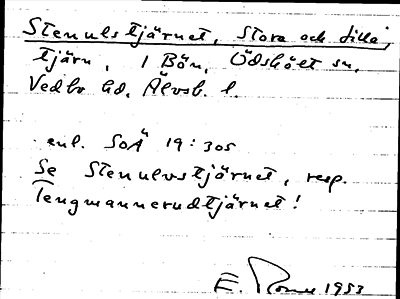 Stenulstjärnet, Stora och Lilla,
tjärn, i Bön, Ödskölt sn,
Vedbo hd, Älvsb. l.
enl. SOÄ 19:305
Se Stenulvstjärnet, resp.
Tengmannerudtjärnet!
E. 1953